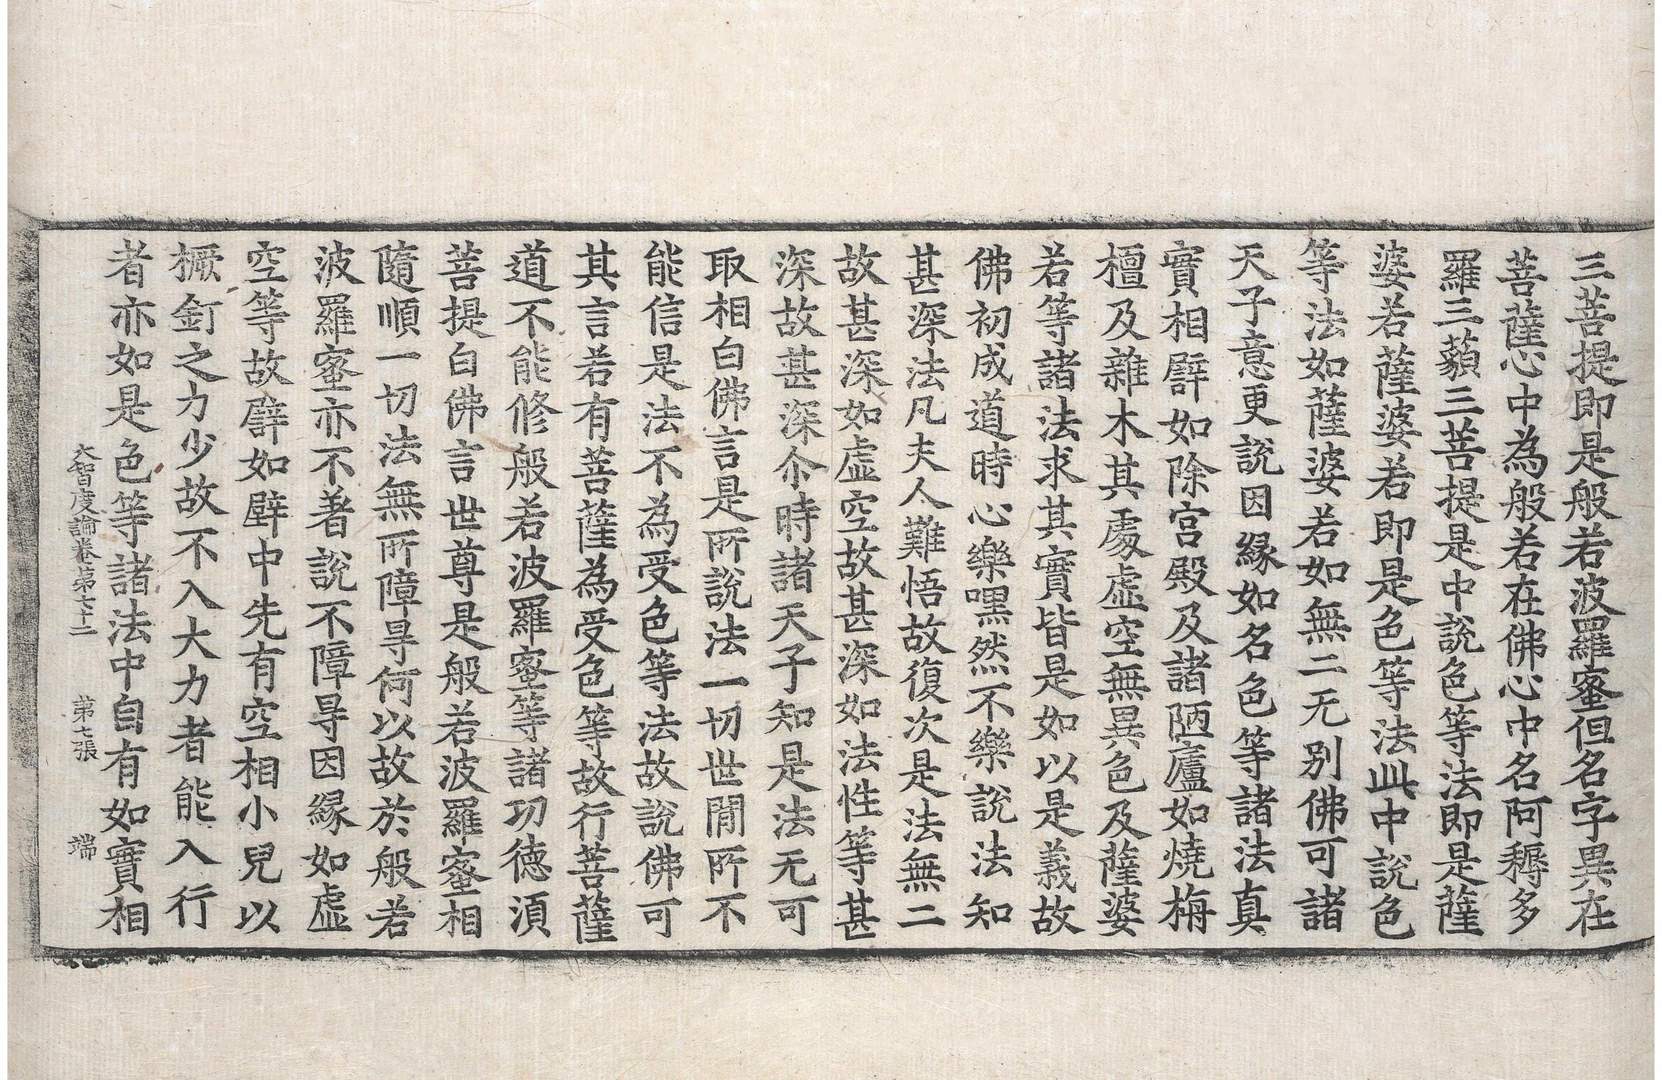 三菩提即是般若波羅蜜但名字異在
菩薩心中為般若在佛心中名阿耨多
羅三藐三菩提是中說色等法即是薩
婆若薩婆若即是色等法此中說色
等法如薩婆若如無二无別佛可諸
天子意更說因緣如名色等諸法真
實相譬如除宮殿及諸陋廬如燒栴
檀及雜木其處虛空無異色及薩婆
若等諸法求其實皆是如以是義故
佛初成道時心樂嘿然不樂說法知
甚深法凡夫人難悟故復次是法無二
故甚深如虛空故甚深如法性等甚
深故甚深尒時諸天子知是法无可
取相白佛言是所說法一切世閒所不
能信是法不為受色等法故說佛可
其言若有菩薩為受色等故行菩薩
道不能修般若波羅蜜等諸功德湏
菩提白佛言世尊是般若波羅蜜相
隨順一切法無所障㝵何以故於般若
波羅蜜亦不著說不障㝵因緣如虛
空等故譬如壁中先有空相小兒以
橛釘之力少故不入大力者能入行
者亦如是色等諸法中自有如實相
大智度論卷第七十二 第七張 端